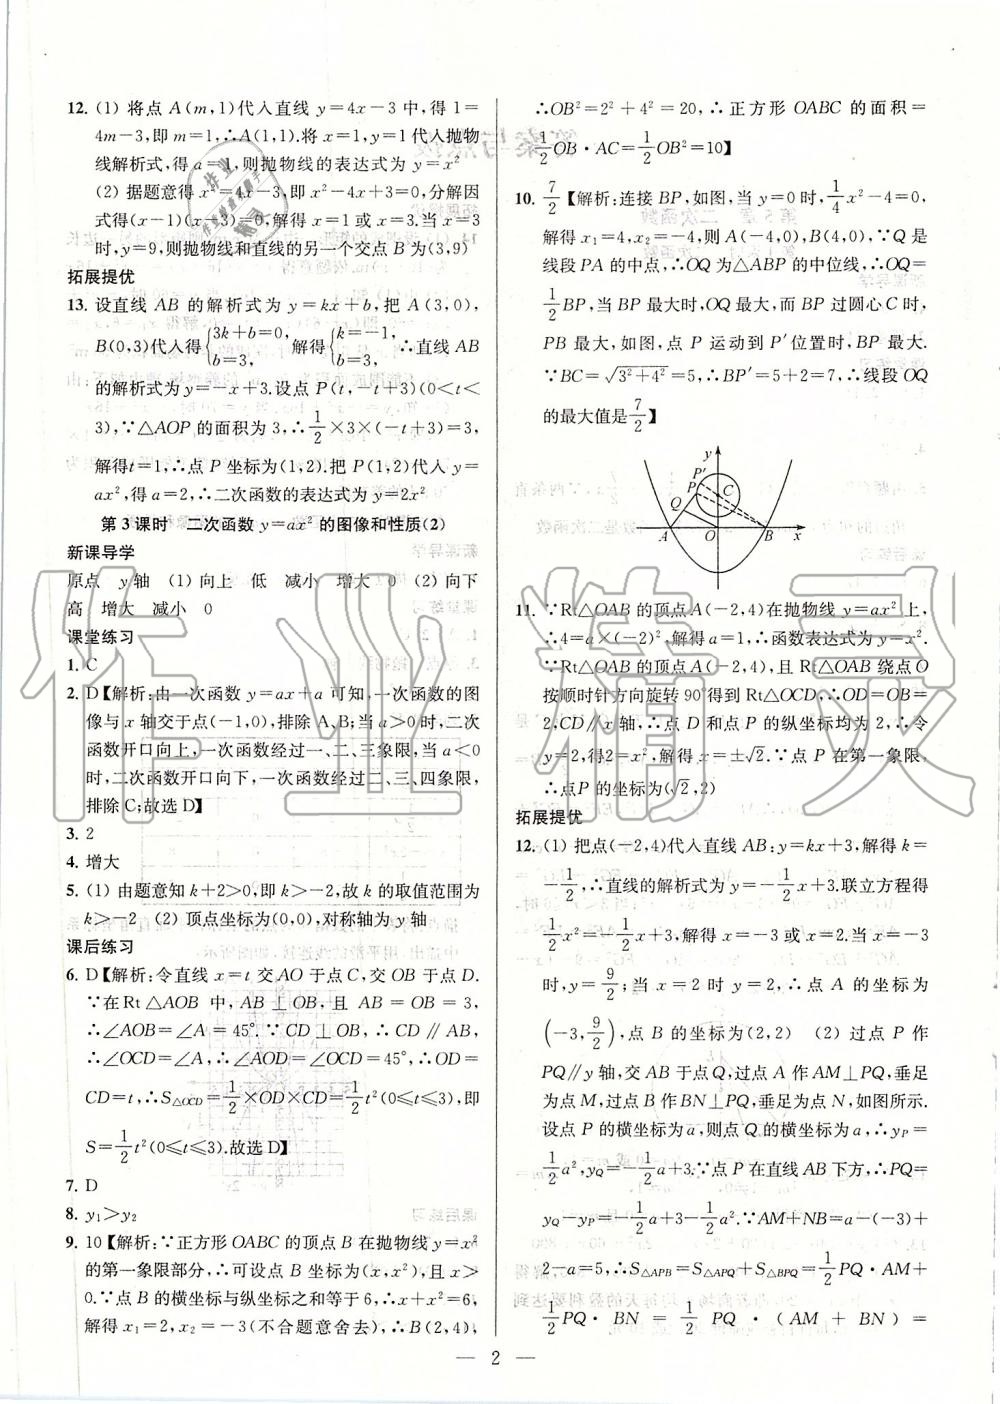 12. (1) 将点 A(m,1)代入直线 y=4x-3 中,得 1=
4m-3,即 m=1,∴A(1,1).将 x=1,y=1 代入抛物
线解析式,得 a=1,则抛物线的表达式为 y=x²
(2) 据题意得 x²=4x-3,即 x²-4x+3=0,分解因
式得(x-1)(x-3)=0,解得 x=1 或 x=3.当 x=3
时,y=9,则抛物线和直线的另一个交点 B 为(3,9)
拓展提优
13. 设直线 AB 的解析式为 y=kx+b,把 A(3,0),
B(0,3)代入得{3k+b=0, b=3, 解得{k=-1, b=3, ∴直线 AB
的解析式为 y=-x+3.设点 P(t,-t+3)(0<t<
3),∵△AOP 的面积为 3,∴1/2×3×(-t+3)=3,
解得t=1,∴点 P 坐标为(1,2).把 P(1,2)代入 y=
ax²,得 a=2,∴二次函数的表达式为 y=2x²
第 3 课时 二次函数 y=ax² 的图像和性质(2)
新课导学
原点 y 轴 (1) 向上 低 减小 增大 0 (2) 向下
高 增大 减小 0
课堂练习
1. C
2. D【解析:由一次函数 y=ax+a 可知,一次函数的图
像与 x 轴交于点(-1,0),排除 A、B;当 a>0 时,二次
函数开口向上,一次函数经过一、二、三象限,当 a<0
时,二次函数开口向下,一次函数经过二、三、四象限,
排除 C;故选 D】
3. 2
4. 增大
5. (1) 由题意知 k+2>0,即 k>-2,故 k 的取值范围为
k>-2 (2) 顶点坐标为(0,0),对称轴为 y 轴
课后练习
6. D【解析:令直线 x=t 交 AO 于点 C,交 OB 于点 D.
∵在Rt△AOB 中,AB⊥OB,且 AB=OB=3,
∴∠AOB=∠A=45°.∵CD⊥OB,∴CD∥AB,
∴∠OCD=∠A,∴∠AOD=∠OCD=45°,∴OD=
CD=t,∴S△OCD=1/2×OD×CD=1/2t²(0≤t≤3),即
S=1/2t²(0≤t≤3).故选 D】
7. D
8. y₁>y₂
9. 10【解析:∵正方形 OABC 的顶点 B 在抛物线 y=x²
的第一象限部分,∴可设点 B 坐标为(x,x²),且 x>
0.∵点 B 的横坐标与纵坐标之和等于 6,∴x+x²=6,
解得 x₁=2,x₂=-3(不合题意舍去),∴B(2,4),
∴OB²=2²+4²=20,∴正方形 OABC 的面积=
1/2OB·AC=1/2OB²=10】
10. 7/2【解析:连接 BP,如图,当 y=0 时,1/4x²-4=0,
解得 x₁=4,x₂=-4,则 A(-4,0),B(4,0),∵Q 是
线段 PA 的中点,∴OQ 为△ABP 的中位线,∴OQ=
1/2BP,当 BP 最大时,OQ 最大,而 BP 过圆心 C 时,
PB 最大,如图,点 P 运动到 P′位置时,BP 最大.
∵BC=√(3²+4²)=5,∴BP′=5+2=7,∴线段 OQ
的最大值是7/2】
y
P′
P
C
Q
A
O
B
x
11. ∵Rt△OAB 的顶点 A(-2,4)在抛物线 y=ax² 上,
∴4=a×(-2)²,解得 a=1,∴函数表达式为 y=x².
∵Rt△OAB 的顶点 A(-2,4),且 Rt△OAB 绕点 O
按顺时针方向旋转 90°得到 Rt△OCD,∴OD=OB=
2,CD∥x 轴,∴点 D 和点 P 的纵坐标均为 2,∴令
y=2,得2=x²,解得 x=±√2.∵点 P 在第一象限,
∴点P 的坐标为(√2,2)
拓展提优
12. (1) 把点(-2,4)代入直线 AB:y=kx+3,解得 k=
-1/2,∴直线的解析式为 y=-1/2x+3.联立方程得
1/2x²=-1/2x+3,解得 x=-3 或 x=2.当 x=-3
时,y=9/2;当 x=2 时 y=2,∴点 A 的坐标为
(-3,9/2),点 B 的坐标为(2,2) (2) 过点 P 作
PQ∥y 轴,交 AB 于点 Q,过点 A 作 AM⊥PQ,垂足
为点 M,过点 B 作 BN⊥PQ,垂足为点 N,如图所示.
设点 P 的横坐标为 a,则点 Q 的横坐标为 a,∴yP=
1/2a²,yQ=-1/2a+3.∵点 P 在直线 AB 下方,∴PQ=
yQ-yP=-1/2a+3-1/2a².∵AM+NB=a-(-3)+
2-a=5,∴S△APB=S△APQ+S△BPQ=1/2PQ·AM+
1/2PQ·BN=1/2PQ·(AM+BN)=
— 2 —
作业精灵